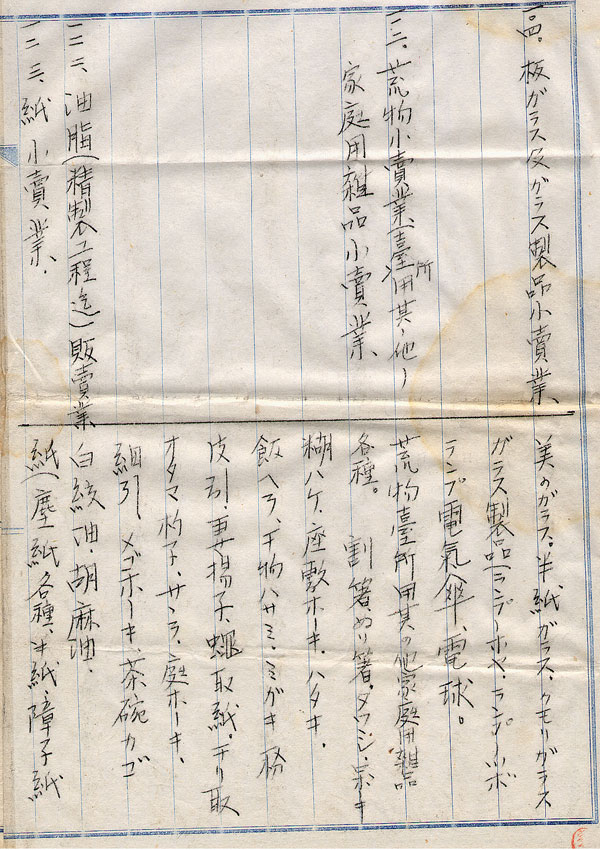 一四。板ガラス及ガラス製品小賣業、
美のガラス。半紙ガラス、クモリガラス
ガラス製品(ランプーホヤ、ランプーツボ
ランプ電氣傘、電球。
一三。荒物小賣業、(臺所用其ノ他)
家庭用雑品小賣業、
荒物臺所用其の他家庭用雑品
各種。割箸ぬり箸。タワシ、
糊ハケ、座敷ホーキ、ハタキ、
飯ヘラ、干物ハサミ、ミガキ
皮引、妻揚子、蠅取紙。チリ取
オタマ杓子、サラ、庭ホーキ、
細引 メゴホーキ、茶碗カゴ
一二 三、油脂(精製工程迄)販賣業
白絞油、胡麻油、
一二 三、紙小賣業、
紙(塵紙各種、半紙、障子紙